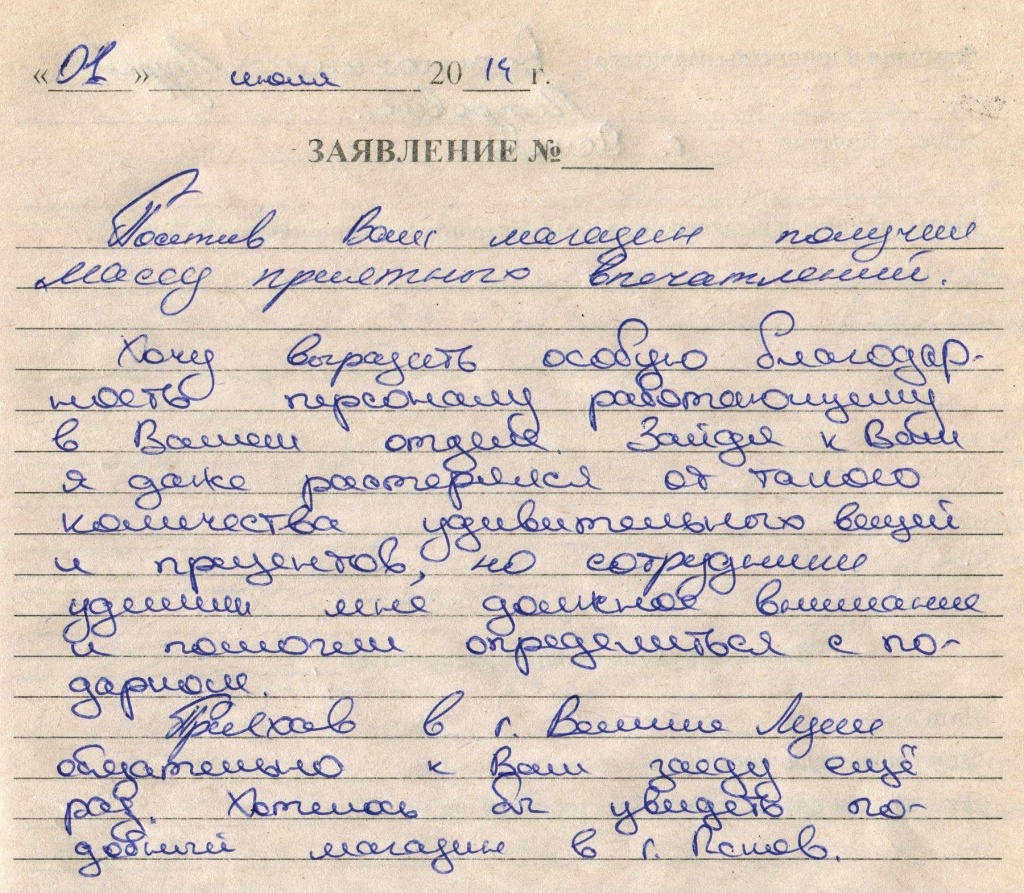 « 01 » июля 20 14 г.
ЗАЯВЛЕНИЕ №
Посетив Ваш магазин получил
массу приятного впечатлений.
Хочу выразить особую благодар-
ность персоналу работающему
в Вашем отделе. Зайдя к Вам
я даже растерялся от такого
количества удивительного вещей
и прецентов, но сотрудники
уделили мне должное внимание
и помогли определиться с по-
дарком.
Приехав в г. Великие Луки
обязательно к Вам заеду ещё
раз. Хотелось бы увидеть по-
добный магазин в г. Псков.